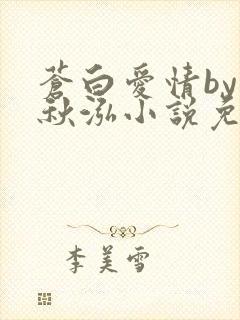 蒼白愛情by
秋泓小說免
李美雪